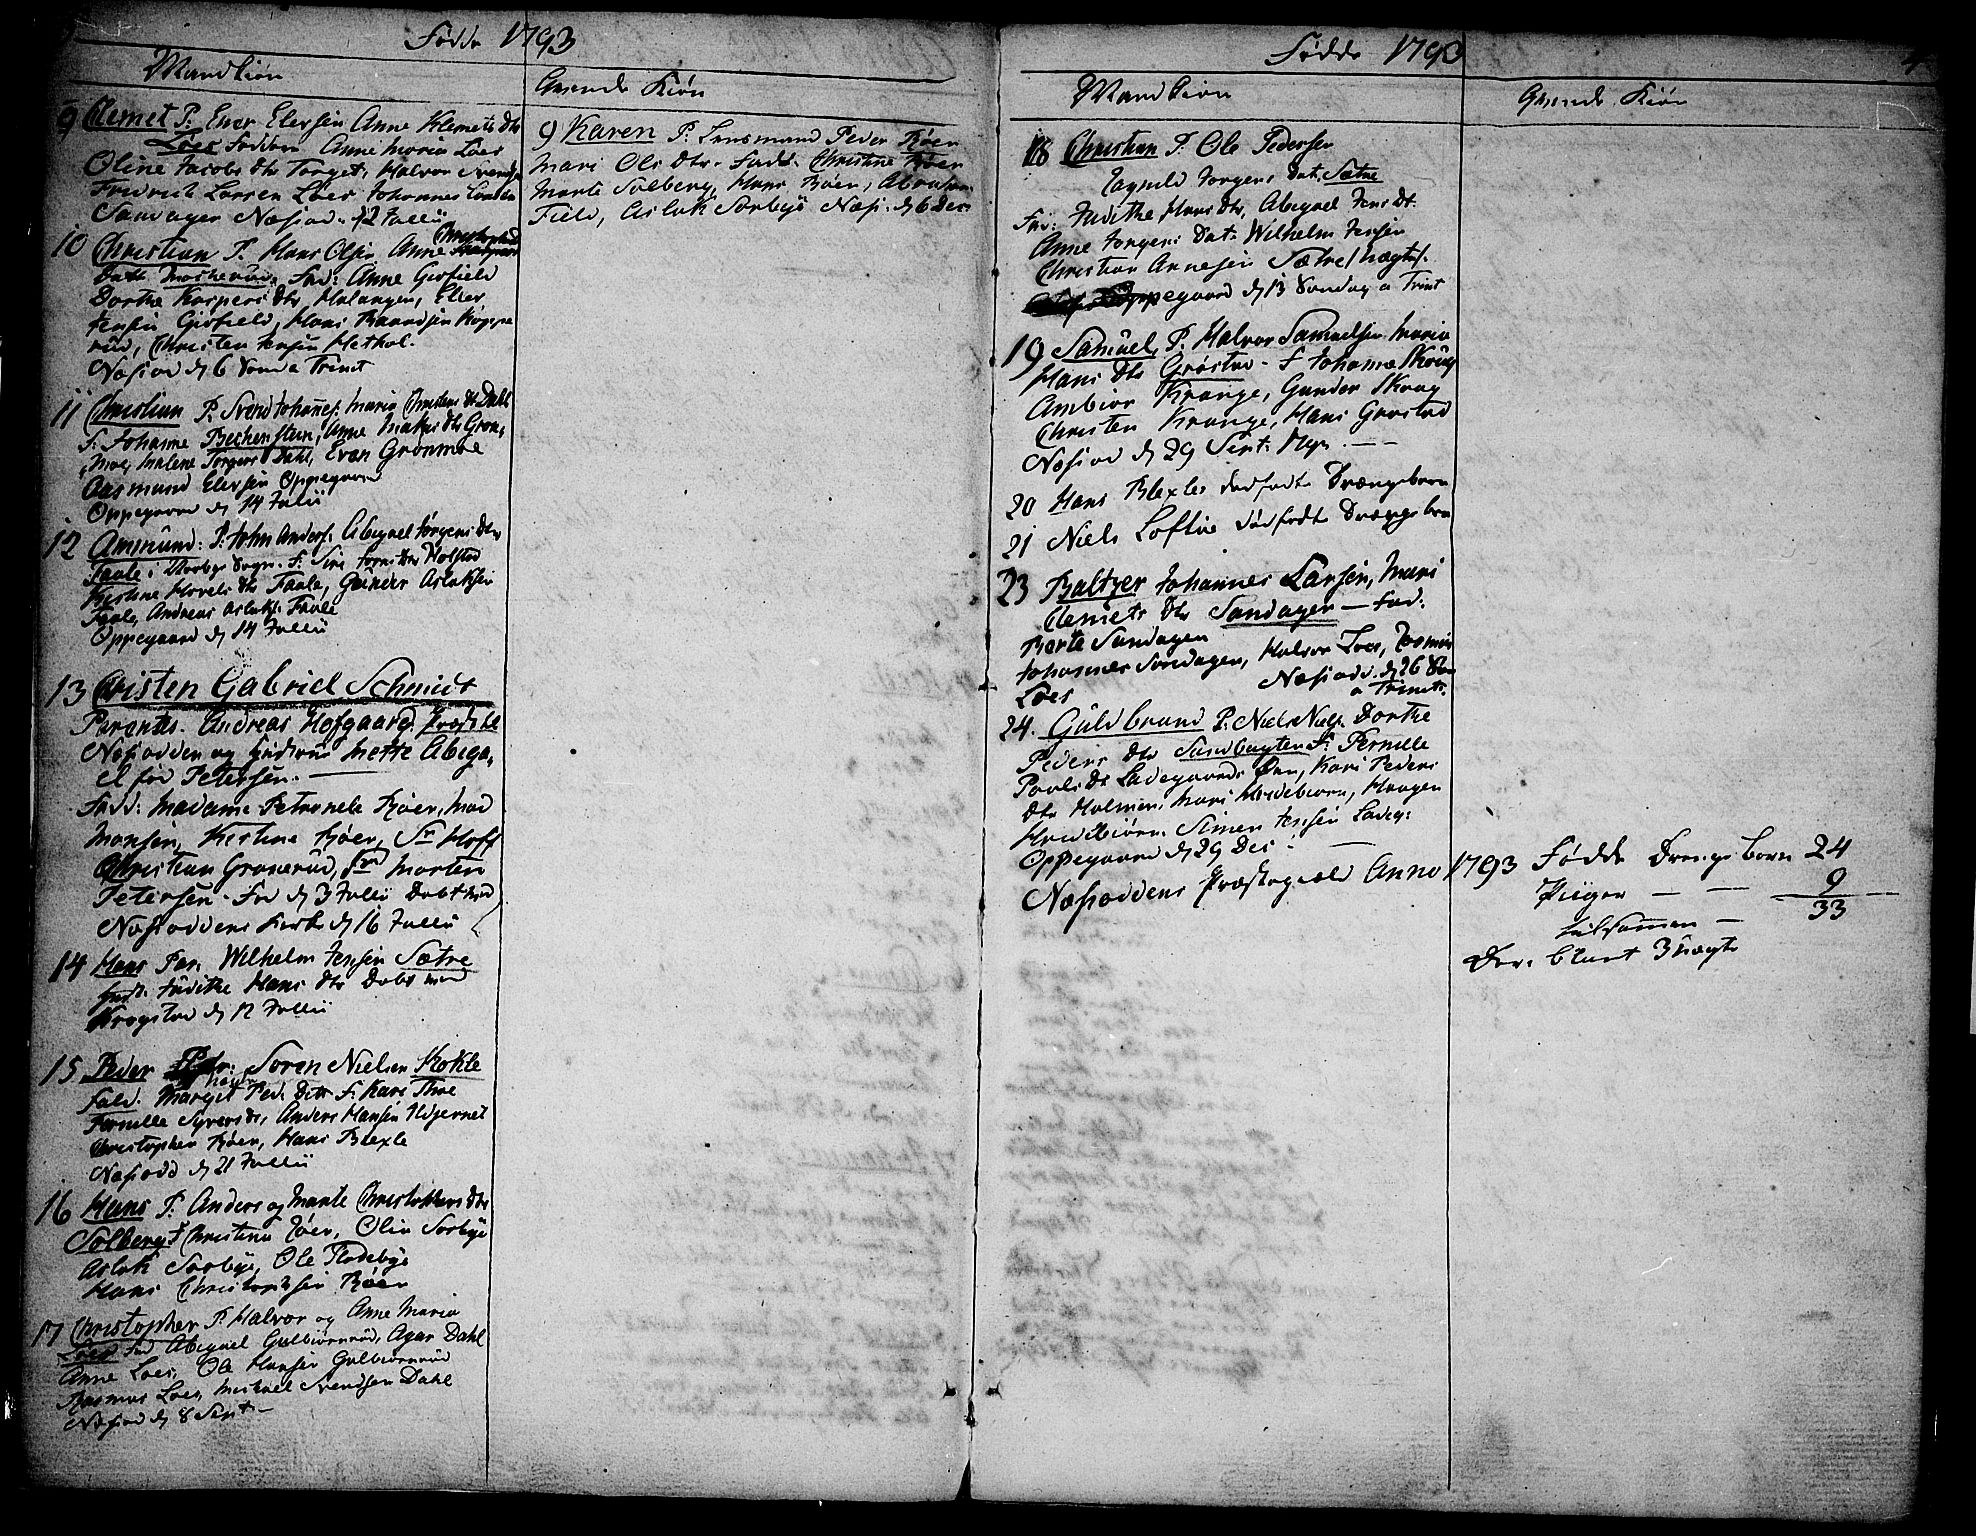 Fødde 1793
Mandkiøn
9 Clemet P. Ener Elersen Anne Klemets Dtr
Loes Fadder Anne Maria Loes
Oline Jacobs Dtr Torget, Halvor Svends.
Fredrich Larsen Loes Johannes
Sandager Næsod. 12 Julii
10 Christian P. Hans Olsen Anne Christophers
Datt Fad: Anne Giofield
Dorthe Kaspers Dtr, Halangen, Eller
Jensen Giofield, Hans Baardsen Koppe
rud, Christen Jensen Hethol.
Næsod d 6 Sond a Trinit
11 Christian P. Svend Johannes. Maria Christens Dtr Dahl
F. Johanne Bechensteen, Anne Dtr Gron,
moe, Malene Torgers Dahl, Even Gronmoe
Aasmund Elersen Oppegaard
Oppegaard d 14 Julii
12 Ammund: P. John Anders. Abigael Jørgens Dtr
Faale i Sogn. F. Siri Dtr Holstad
Kirstine Hovels Dtr Faale, Gunder Aslaksen
Faale, Andreas Aslaks. Faale
Oppegaard d 14 Julii
13 Cristen Gabriel Schmidt
Parentes. Andreas Hofgaard Præst til
Næsodden og Hustrue Mette Abiga,
el fød Petersen.
Fadd: Madame Petronele Røer, Mad
Monsen, Kistine Røer, Sr Hoff
Christian Granerud, Sr Morten
Petersen. Fød d 3 Julii Døbt ved
Næsoddens Kirke d 16 Julii
14 Hans Par. Wilhelm Jensen Sætre
Hust. Judithe Hans Dtr Døbt ved
Krogstad d 12 Julii
15 Peder Soren Nielsen Kokle
Fald. Margit Ped. Dttr F. Kari
Pernille Syvers Dtr, Anders Hansen
Christopher Røer, Hans Blexle
Næsodd d 21 Julii
16 Hans P. Anders og Marte Christophers Dtr
Solberg F Christine Røer, Olia Sorbye
Aslak Sorbye, Ole Flodebye
Hans Christophsen Røer
17 Christopher P. Halvor og Anne Maria
Loes Fad Abigael Gulbiørnrud, Agar Dahl
Anne Loes, Ole Hansen Gulbiørnrud
Rasmus Loes, Michael Svendsen Dahl
Næsod d 8 Sept
Qvinde Kiøn
9 Karen P. Lensmand Peder Røer
Mari Ols Dtr. Fadd. Christine Røer
Marte Solberg, Hans Røer, Abraham
Field, Aslak Sorbye Næs. d 6 Dec.
Fødde 1793
4
Mandkiøn
18 Christian P. Ole Pedersen
Jorgens Dat. Sætre
Fad: Judithe Hans Dtr, Abigael Jens Dt.
Anne Jorgens Dat. Wilhelm Jensen
Christian Arnesen Sætre /Uægte/.
Oppegaard d 13 Sondag a Trinit
19 Samuel, P. Halvor Samuelsen Maria
Hans Dtr Grøstad. F Johanne Skoug
Ambior Krange, Gunder Skoug
Christen Krange, Hans Grøstad
Næsod d 29 Sept.
20 Hans Blexles dødfødte Drængebarn
21 Niels Loftu dødfødte Drængebarn
23 Baltzer Johannes Larsen, Mari
Clemets Dtr Sandager — Fad.
Berte Sandagen
Johannes Sandagen, Halvor Loes, Rasmus
Loes Næsodd. d 26 Son
a Trinit.
24. Guldbrand P. Niels Niels. Dorthe
Peders Dtr Sandbugten F. Pernille
Povels Dt Ladegaards Øen, Kari Peders
Dtr Holmen. Mari Hvidebiorn, Haagen
Hvidbiørn. Simen Jensen Ladeg:
Oppegaard d 29 Dec.
Næsoddens Præstegield Anno 1793
Qvinde Kiøn
Fødde Drenge børn 24
Piiger — — 9
tilsamen — 33
Der. blant 3 uægte